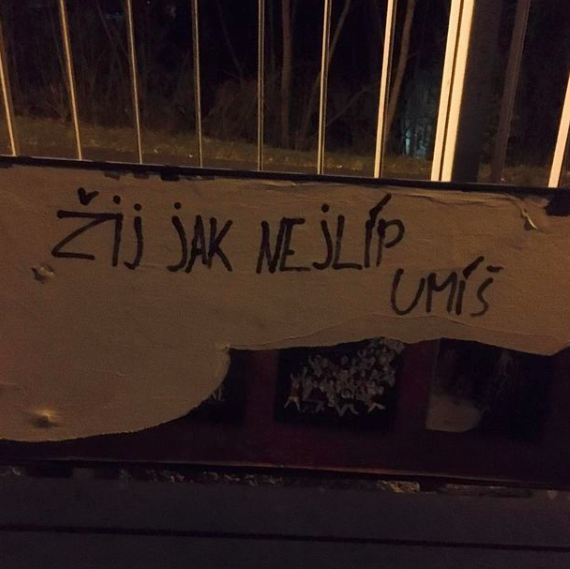 Žij jAK NEJLÍP
UMÍŠ